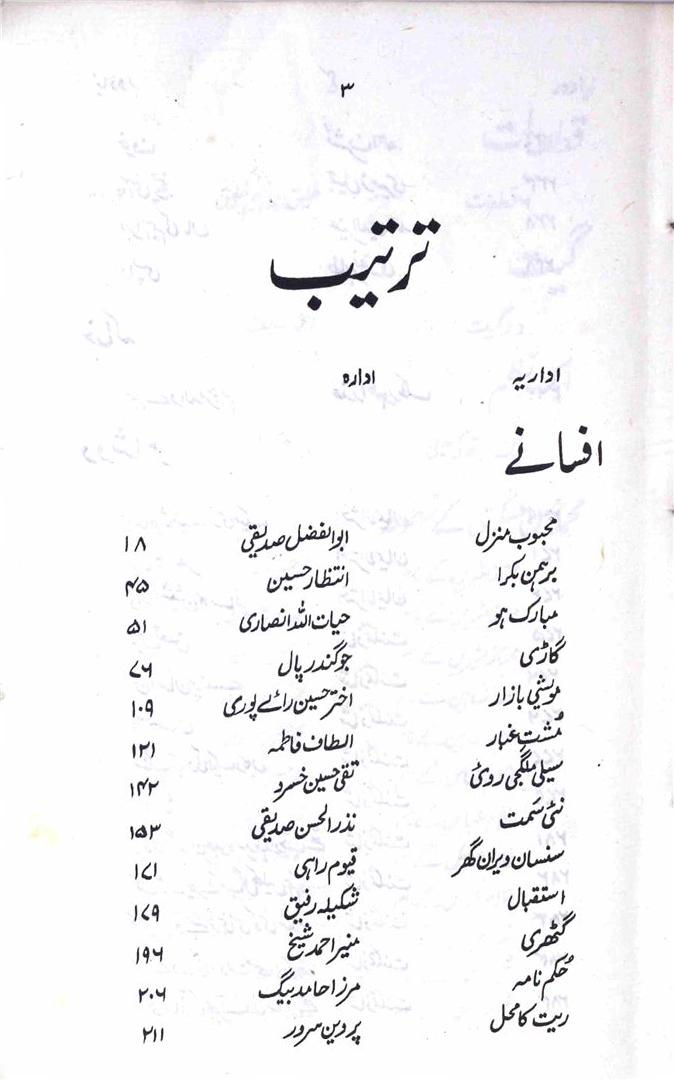 ۳
ترتیب
اداریہ ادارہ
افسانے
محبوب منزل ابوالفضل صدیقی ۱۸
برہمن بکرا انتظار حسین ۴۵
مبارک ہو حیات اللہ انصاری ۵۱
گاڑی جوگندر پال ۷۶
مویشی بازار اختر حسین رائے پوری ۱۰۹
مُشتِ غبار الطاف فاطمہ ۱۲۱
سیلی ملگجی روئی تقی حسین خسرو ۱۴۲
نئی سَمت نذر الحسن صدیقی ۱۵۳
سنسان ویران گھر قیوم راہی ۱۷۱
استقبال شکیلہ رفیق ۱۷۹
گٹھری منیر احمد شیخ ۱۹۶
حُکم نامہ مرزا حامد بیگ ۲۰۶
ریت کا محل پروین سرور ۲۱۱